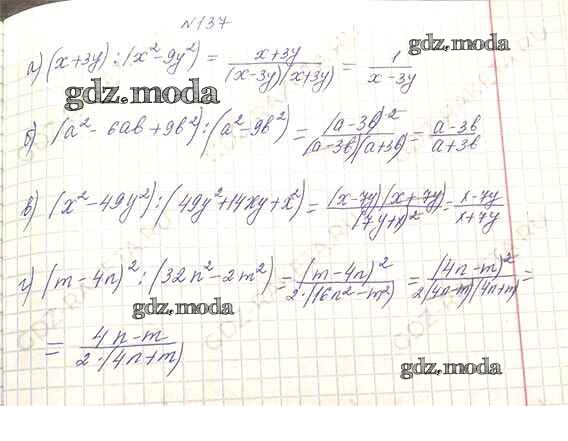 №137
а) (x+3y) : (x²-9y²) = (x+3y)/((x-3y)(x+3y)) = 1/(x-3y)
gdz.moda
gdz.moda
б) (a²-6ab+9b²) : (a²-9b²) = (a-3b)²/((a-3b)(a+3b)) = (a-3b)/(a+3b)
в) (x²-49y²) : (49y²+14xy+x²) = (x-7y)(x+7y)/(7y+x)² = (x-7y)/(x+7y)
г) (m-4n)² : (32n²-2m²) = (m-4n)²/(2·(16n²-m²)) = (4n-m)²/(2(4n-m)(4n+m)) =
gdz.moda
= (4n-m)/(2·(4n+m))
gdz.moda